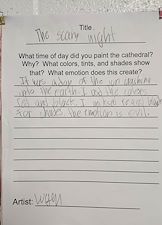 Title
The scary night
What time of day did you paint the cathedral?
Why? What colors, tints, and shades show
that? What emotion does this create?
It was a day of the
into the earth I did the colors
red and black. I
For The emotion is evil.
Artist: